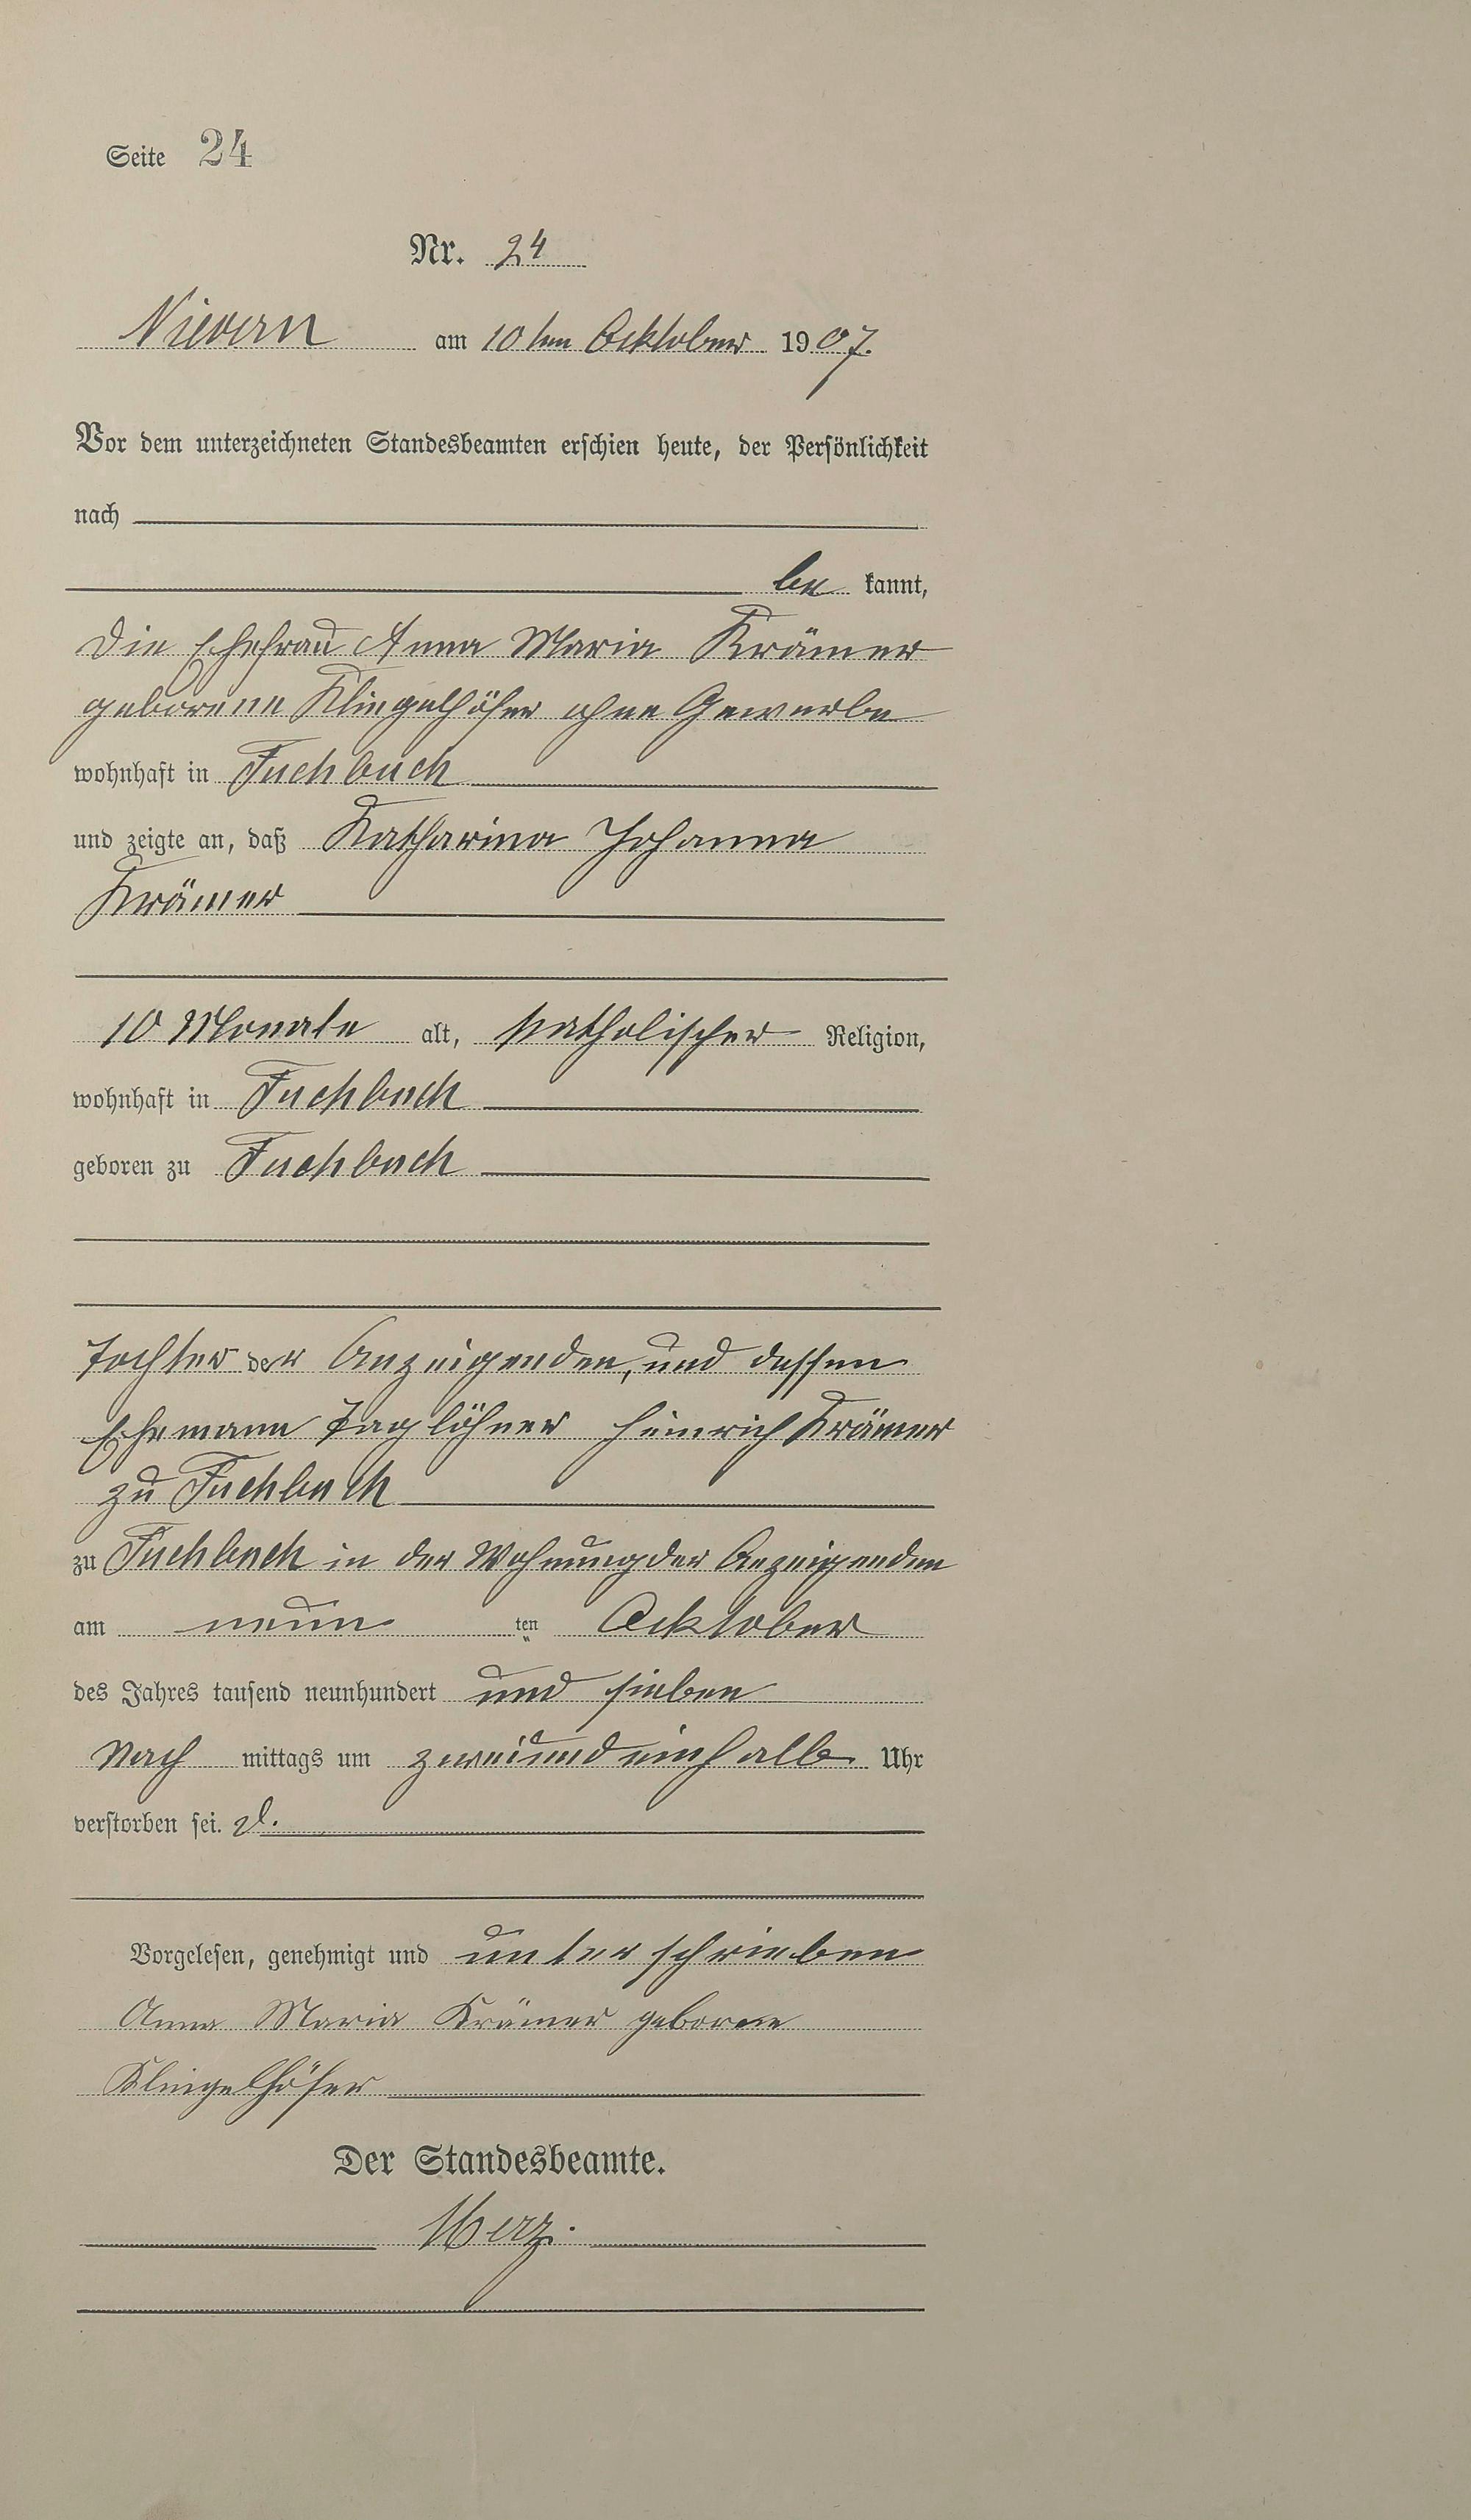 Seite 24
Nr. 24
Nievern am 10ten Ocktober 1907.
Vor dem unterzeichneten Standesbeamten erschien heute, der Persönlichkeit
nach
be kannt,
Die Ehefrau Anna Maria Krämer
geborene Klingelhöfer ohne Gewerbe
wohnhaft in Fuchbach
und zeigte an, daß Katharina Johanna
Krämer
10 Monate alt, katholischer Religion,
wohnhaft in Fuchbach
geboren zu Fuchbach
Tochter der Anzeigenden, und dessen
Ehemann Taglöhner Heinrich Krämer
zu Fuchbach
zu Fuchbach in der Wohnung der Anzeigenden
am neun ten Ocktober
des Jahres tausend neunhundert und sieben
Nach mittags um zweiundeinhalb Uhr
verstorben sei.
Vorgelesen, genehmigt und unterschrieben
Anna Maria Krämer geborene
Klingelhöfer
Der Standesbeamte.
Merz.